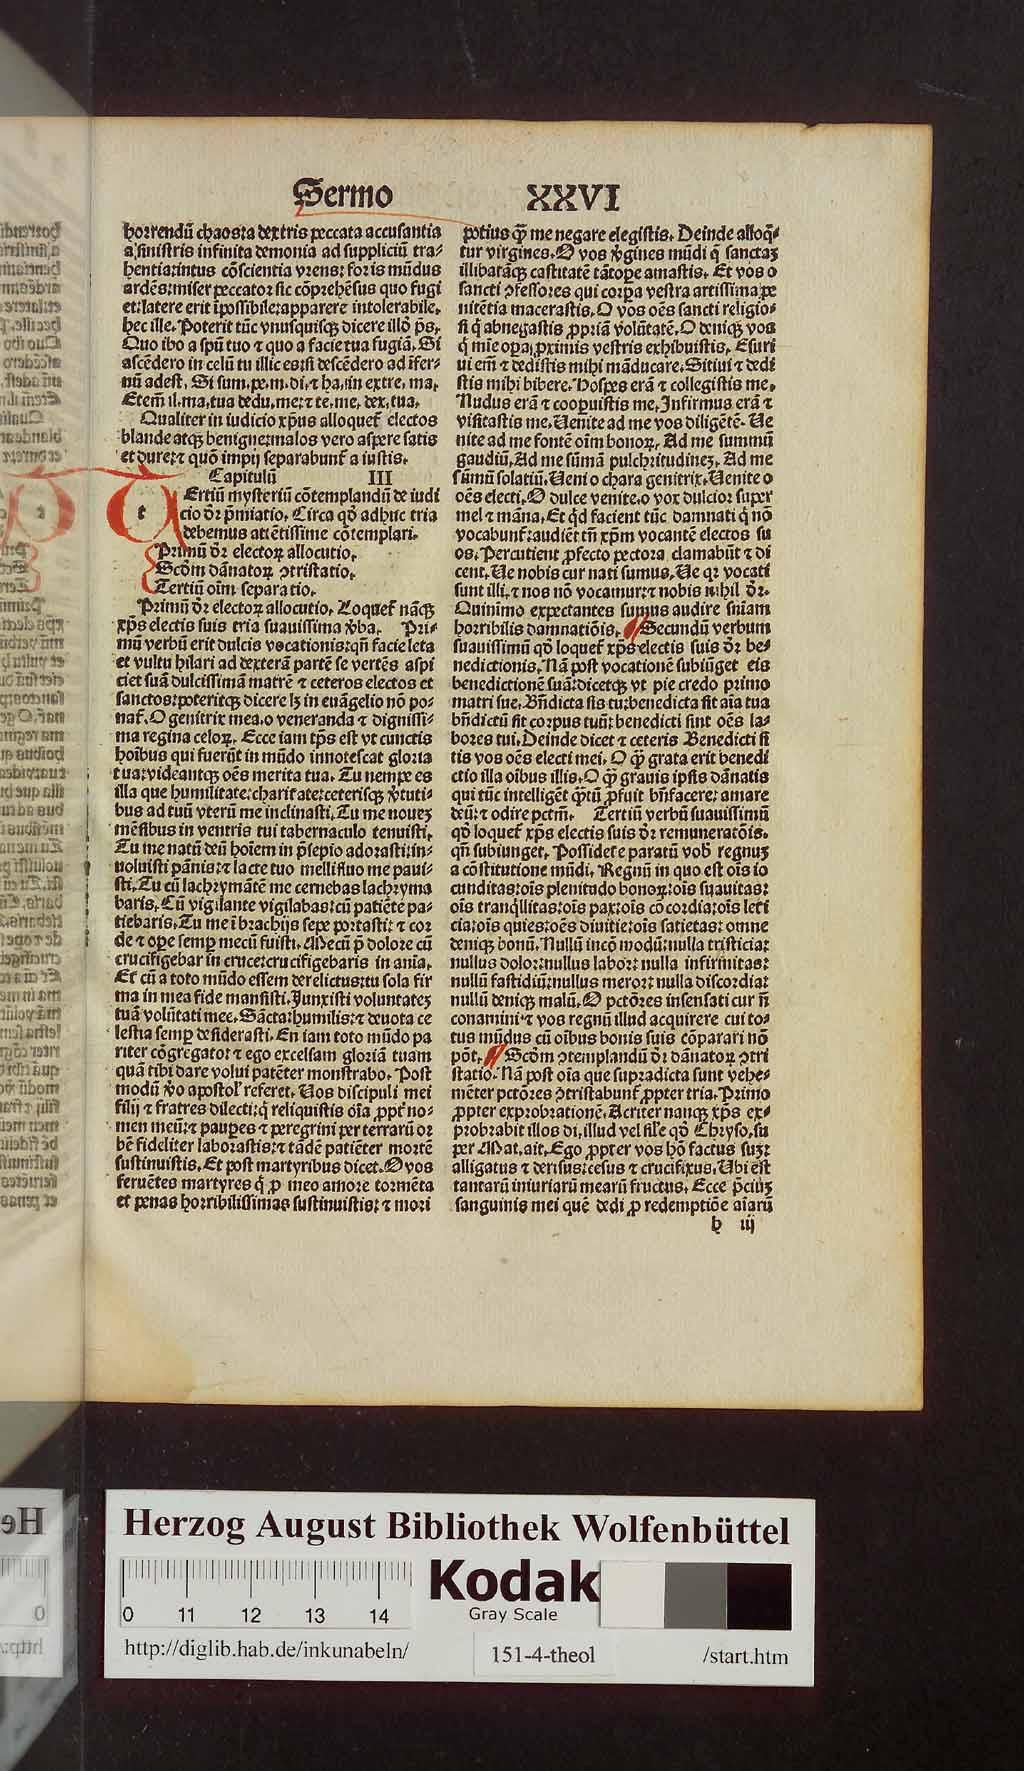 Sermo XXVI
horrendū chaos: a dextris peccata accusantia
a sinistris infinita demonia ad suppliciū tra⸗
hentia: intus cōscientia vrens: foris mūdus
ardēs: miser peccator sic cōprehēsus quo fugi
et: latere erit īpossibile: apparere intolerabile.
hec ille. Poterit tūc vnusquisqꝫ dicere illō ps̄.
Quo ibo a spū tuo ⁊ quo a facie tua fugiā. Si
ascēdero in celū tu illic es: si descēdero ad īfer⸗
nū adest. Si sum. pe. m. di. ⁊ ha. in extre. ma.
Etem̄ il. ma. tua dedu. me: ⁊ te. me. dex. tua.
Qualiter in iudicio xp̄us alloquet̄ electos
blande atqꝫ benigne: malos vero aspere satis
et dure: ⁊ quō impij separabunt̄ a iustis.
Capitulū III
t Ertiū mysteriū cōtemplandū de iudi
cio dr̄ p̄miatio. Circa qd̄ adhuc tria
debemus attētissime cōtemplari.
Primū dr̄ electoꝝ allocutio.
Scd̄m dānatoꝝ ↄtristatio.
Tertiū oīm separatio.
Primū dr̄ electoꝝ allocutio. Loquet̄ nāqꝫ
xp̄s electis suis tria suauissima v̄ba. Pri⸗
mū verbū erit dulcis vocationis: qn̄ facie leta
et vultu hilari ad dexterā partē se vertēs aspi
ciet suā dulcissimā matrē ⁊ ceteros electos et
sanctos: poteritqꝫ dicere lꝫ in euāgelio nō po⸗
nat̄. O genitrix mea. o veneranda ⁊ dignissi⸗
ma regina celoꝝ. Ecce iam tp̄s est vt cunctis
hoībus qui fuerūt in mūdo innotescat gloria
tua: videantqꝫ oēs merita tua. Tu nempe es
illa que humilitate: charitate: ceterisqꝫ v̄tuti⸗
bus ad tuū vterū me inclinasti. Tu me nouez
mēsibus in ventris tui tabernaculo tenuisti.
Tu me natū deū hoīem in p̄sepio adorasti: in⸗
uoluisti pānis: ⁊ lacte tuo mellifluo me paui⸗
sti. Tu cū lachrymātē me cernebas lachryma
baris. Cū vigilante vigilabas: cū patiēte pa⸗
tiebaris. Tu me ī brachijs sepe portasti: ⁊ cor
de ⁊ oꝑe semꝑ mecū fuisti. Mecū p̄ dolore cū
crucifigebar in cruce: crucifigebaris in aīa.
Et cū a toto mūdo essem derelictus: tu sola fir
ma in mea fide mansisti. Junxisti voluntatez
tuā volūtati mee. Sācta: humilis: ⁊ deuota ce
lestia semꝑ desiderasti. En iam toto mūdo pa
riter cōgregato: ⁊ ego excelsam gloriā tuam
quā tibi dare volui patēter monstrabo. Post
modū v̄o apostol' referet. Uos discipuli mei
filij ⁊ fratres dilecti: q̇ reliquistis oīa ꝓpt̄ no⸗
men meū: ⁊ pauꝑes ⁊ peregrini per terrarū or
bē fideliter laborastis: ⁊ tādē patiēter mortē
sustinuistis. Et post martyribus dicet. O vos
feruētes martyres q̇ ꝓ meo amore tormēta
et penas horribilissimas sustinuistis: ⁊ mori
potius q̄ꝫ me negare elegistis. Deinde alloq̄⸗
tur virgines. O vos v̄gines mūdi q̇ sanctaꝫ
illibatāqꝫ castitatē tātoꝑe amastis. Et vos o
sancti ↄfessores qui corꝑa vestra artissima pe
nitētia macerastis. O vos oēs sancti religio⸗
si q̇ abnegastis ꝓpriā volūtatē. O deniqꝫ vos
q̇ mīe oꝑa: proximis vestris exhibuistis. Esuri
ui em̄ ⁊ dedistis mihi māducare. Sitiui ⁊ dedi
stis mihi bibere. Hospes erā ⁊ collegistis me.
Nudus erā ⁊ cooꝑuistis me. Infirmus erā ⁊
visitastis me. Uenite ad me vos diligētē. Ue
nite ad me fontē oīm bonoꝝ. Ad me summū
gaudiū. Ad me sūmā pulchritudinez. Ad me
sūmū solatiū. Ueni o chara genitrix. Uenite o
oēs electi. O dulce venite. o vox dulcior super
mel ⁊ māna. Et qd̄ facient tūc damnati q̇ nō
vocabunt̄: audiēt tn̄ xp̄m vocantē electos su
os. Percutient ꝓfecto pectora clamabūt ⁊ di
cent. Ue nobis cur nati sumus. Ue qꝛ vocati
sunt illi. ⁊ nos nō vocamur: ⁊ nobis nihil dr̄.
Quinimo expectantes sumus audire sn̄iam
horribilis damnatiōis. Secundū verbum
suauissimū qd̄ loquet̄ xp̄s electis suis dr̄ be⸗
nedictionis. Nā post vocationē subiūget eis
benedictionē suā: dicetqꝫ vt pie credo primo
matri sue. Bn̄dicta sis tu: benedicta sit aīa tua
bn̄dictū sit corpus tuū: benedicti sint oēs la⸗
bores tui. Deinde dicet ⁊ ceteris Benedicti si
tis vos oēs electi mei. O q̄ꝫ grata erit benedi
ctio illa oībus illis. O q̄ꝫ grauis ipsis dānatis
qui tūc intelligēt q̄tū ꝓfuit bn̄facere: amare
deū: ⁊ odire pctm̄. Tertiū verbū suauissimū
qd̄ loquet̄ xp̄s electis suis dr̄ remuneratōis.
qn̄ subiunget. Possidete paratū vob̄ regnuꝫ
a cōstitutione mūdi. Regnū in quo est oīs io
cunditas: oīs plenitudo bonoꝝ: oīs suauitas:
oīs tranq̇llitas: oīs pax: oīs cōcordia: oīs leti
cia: oīs quies: oēs diuitie: oīs satietas: omne
deniqꝫ bonū. Nullū incōmodū: nulla tristicia:
nullus dolor: nullus labor: nulla infirmitas:
nullū fastidiū: nullus meror: nulla discordia:
nullū deniqꝫ malū. O pctōres insensati cur n̄
conamini ⁊ vos regnū illud acquirere cui to⸗
tus mūdus cū oībus bonis suis cōparari nō
pōt. Scd̄m ↄtemplandū dr̄ dānatoꝝ ↄtri
statio. Nā post oīa que supradicta sunt vehe⸗
mēter pctōres ↄtristabunt̄ ꝓpter tria. Primo
ꝓpter exprobrationē. Acriter nanqꝫ xp̄s ex⸗
probrabit illos di. illud vel sil'e qd̄ Chryso. su
per Mat. ait. Ego ꝓpter vos hō factus suꝫ:
alligatus ⁊ derisus: cesus ⁊ crucifixus. Ubi est
tantarū iniuriarū mearū fructus. Ecce p̄ciūꝫ
sanguinis mei quē dedi ꝓ redemptiōe aīarū
h iij
Herzog August Bibliothek Wolfenbüttel
Kodak
Gray Scale
0 11 12 13 14
http://diglib.hab.de/inkunabeln/ 151-4-theol /start.htm